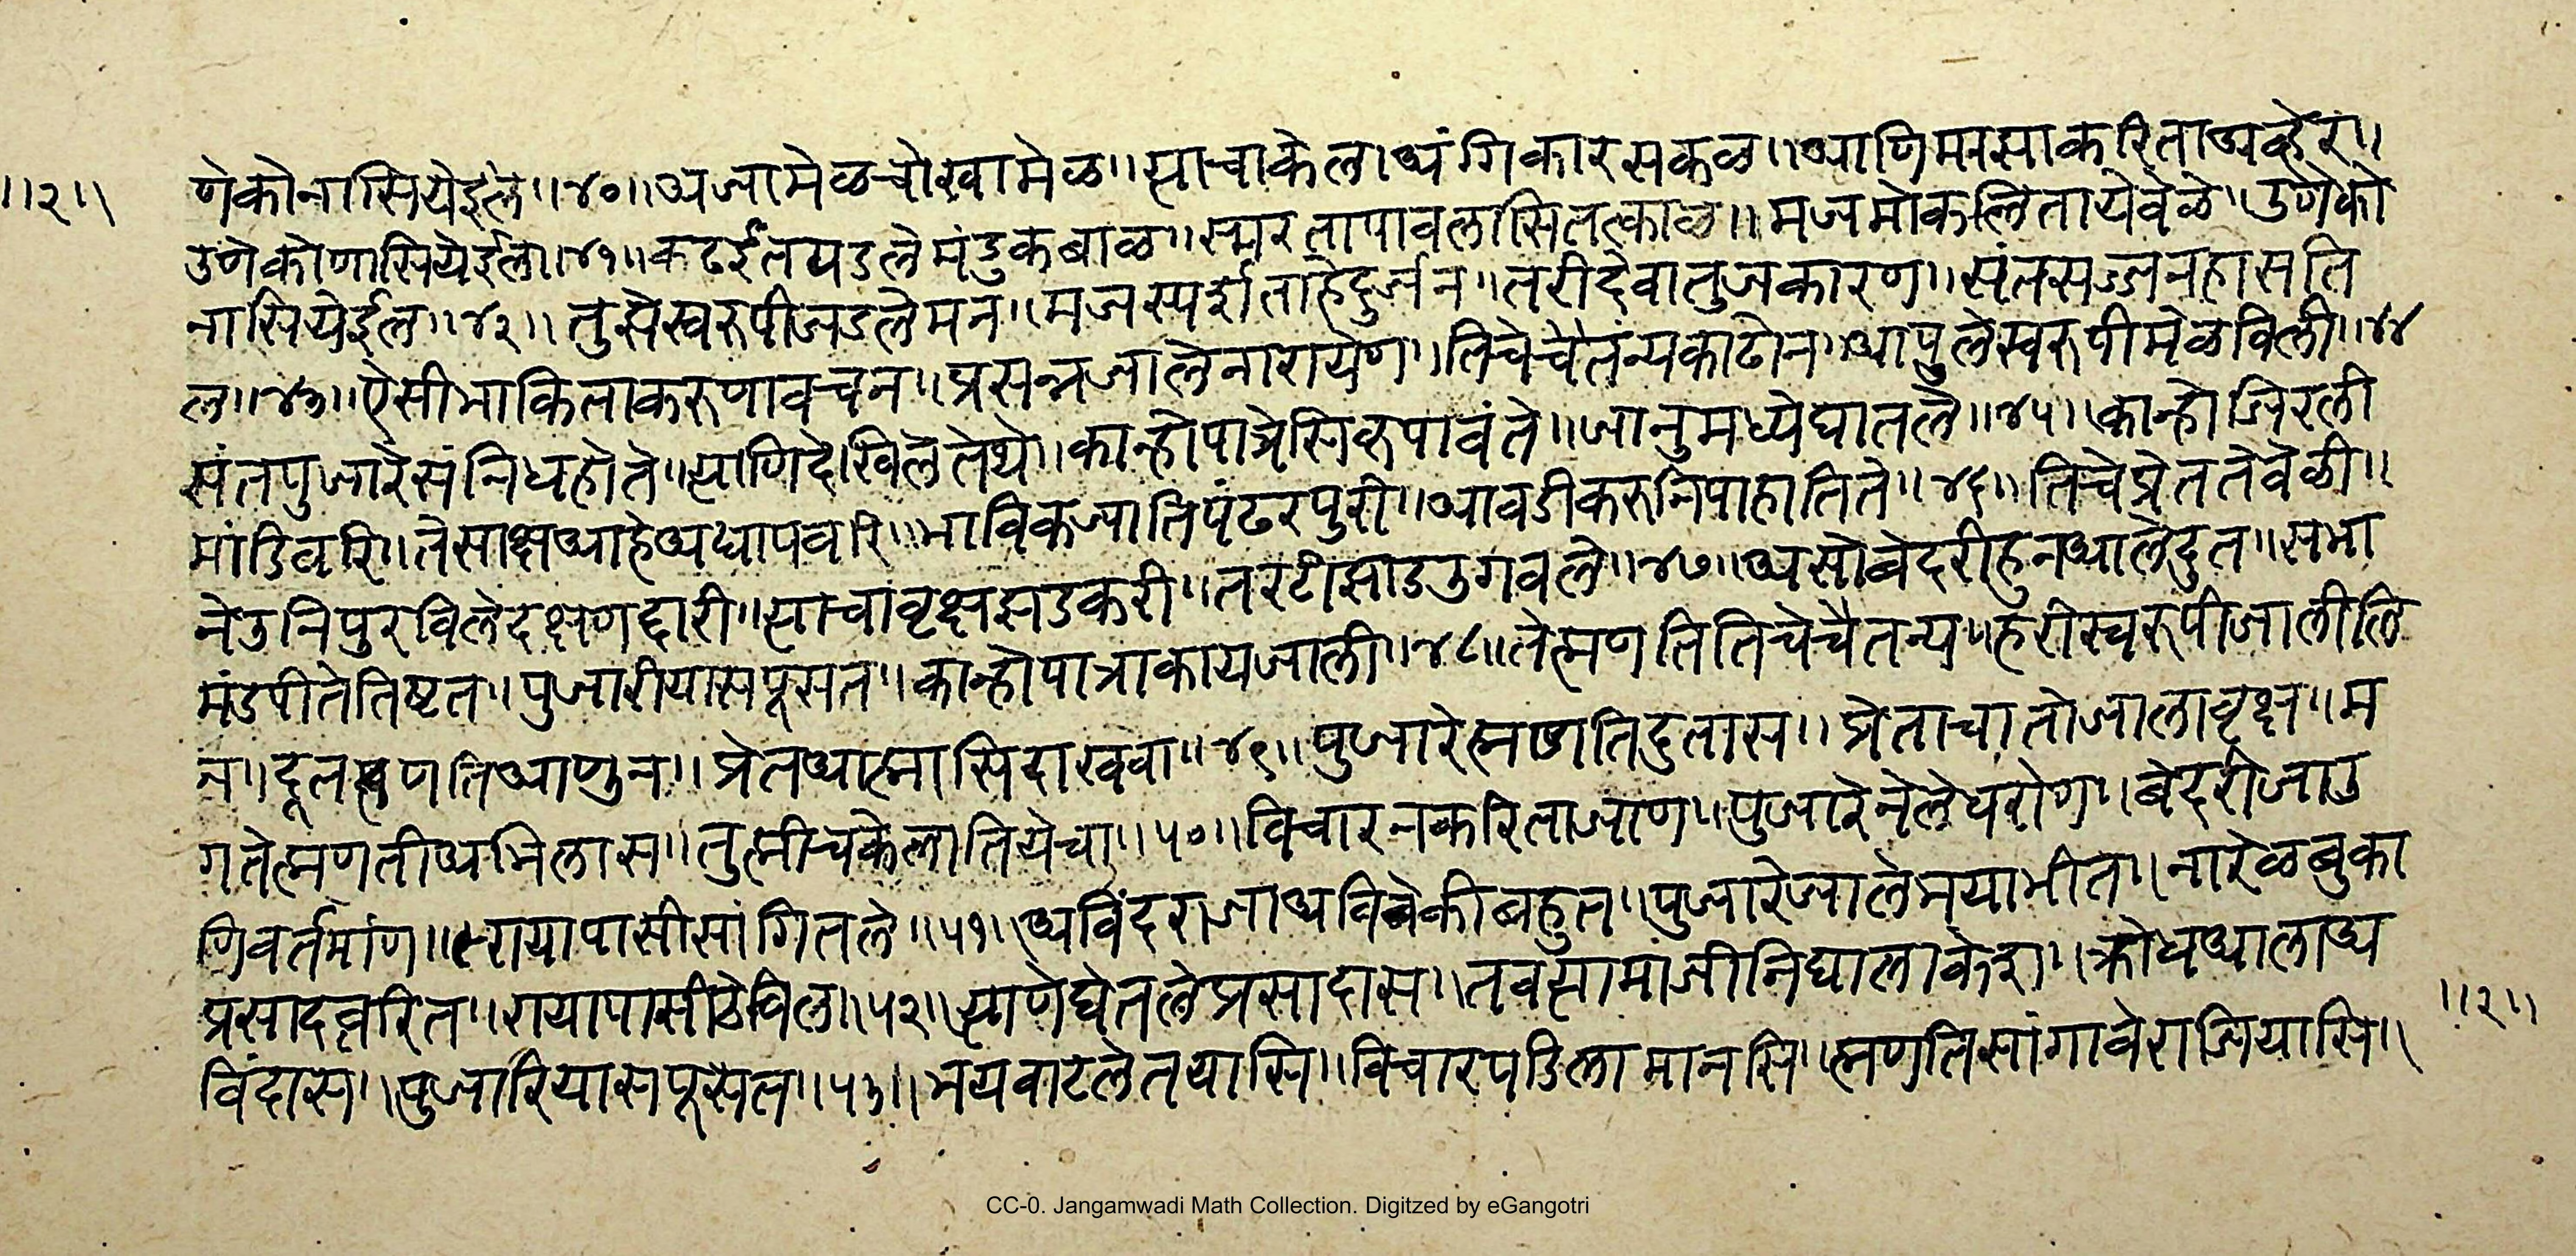 ॥२॥ णेकोनासियेईल॥४०॥अजामेळचोखामेळ॥त्याचाकेलाअंगिकारसकळ॥आणिमासाकरिताअव्हेर॥
उणेकोणासियेईल॥४१॥कढईतपडलेमंडुकबाळ॥स्मरतापावलासितत्काळ॥मजमोकलितायेवेळे॥उणेको
नासियेईल॥४२॥तुझेस्वरुपीजडलेमन॥मजस्पर्शताहेदुर्जन॥तरीदेवातुजकारण॥संतसज्जनहासति
ल॥४३॥ऐसीभाकिताकरुणावचन॥प्रसन्नजालेनारायेण॥तिचेचैतन्यकाढोन॥आपुलेस्वरुपीमेळविली॥४४
संतपुजारेसंनिधहोते॥त्याणिदेखिलेतेथे॥कान्होपात्रेसिरुपावंते॥जानुमध्येघातले॥४५॥कान्होजिरली
मांडिवरि॥तेसाक्षआहेअद्यापवरि॥भाविकज्यातिपंढरपुरी॥आवडीकरुनिपाहातिते॥४६॥तिचेप्रेततेवेळी॥
नेउनिपुरविलेदक्षणद्वारी॥त्याचावृक्षझडकरी॥तरटीझाडउगवले॥४७॥असोबेदरीहुनआलेदुत॥सभा
मंडपीतेतिष्टत॥पुजारीयासपूसत॥कान्होपात्राकायजाली॥४८॥तेह्मणतितिचेचैतन्य॥हरीस्वरुपीजालीलि
न॥दूतह्मणतिआणुन॥प्रेतआह्मासिदाखवा॥४९॥पुजारेह्मणतिदुतास॥प्रेताचातोजालावृक्ष॥म
गतेह्मणतीअभिलास॥तुह्मीचकेलातियेचा॥५०॥विचारनकरिताजाण॥पुजारेनेलेधरोण॥बेदरीजाउ
णिवर्तमांण॥रायापासीसांगितले॥५१॥अविंदराजाअविवेकीबहुत॥पुजारेजालेभयाभीत॥नारेळबुका
प्रसादत्वरित॥रायापासीठेविला॥५२॥त्याणेघेतलेप्रसादास॥तवत्यामाजीनिघालाकेश॥क्रोधआलाअ
विंदास॥पुजारियासपूसेत॥५३॥भयवाटलेतयासि॥विचारपडिलामानसि॥ह्मणतिसांगावेराजियासि॥
॥२॥
CC-0. Jangamwadi Math Collection. Digitzed by eGangotri